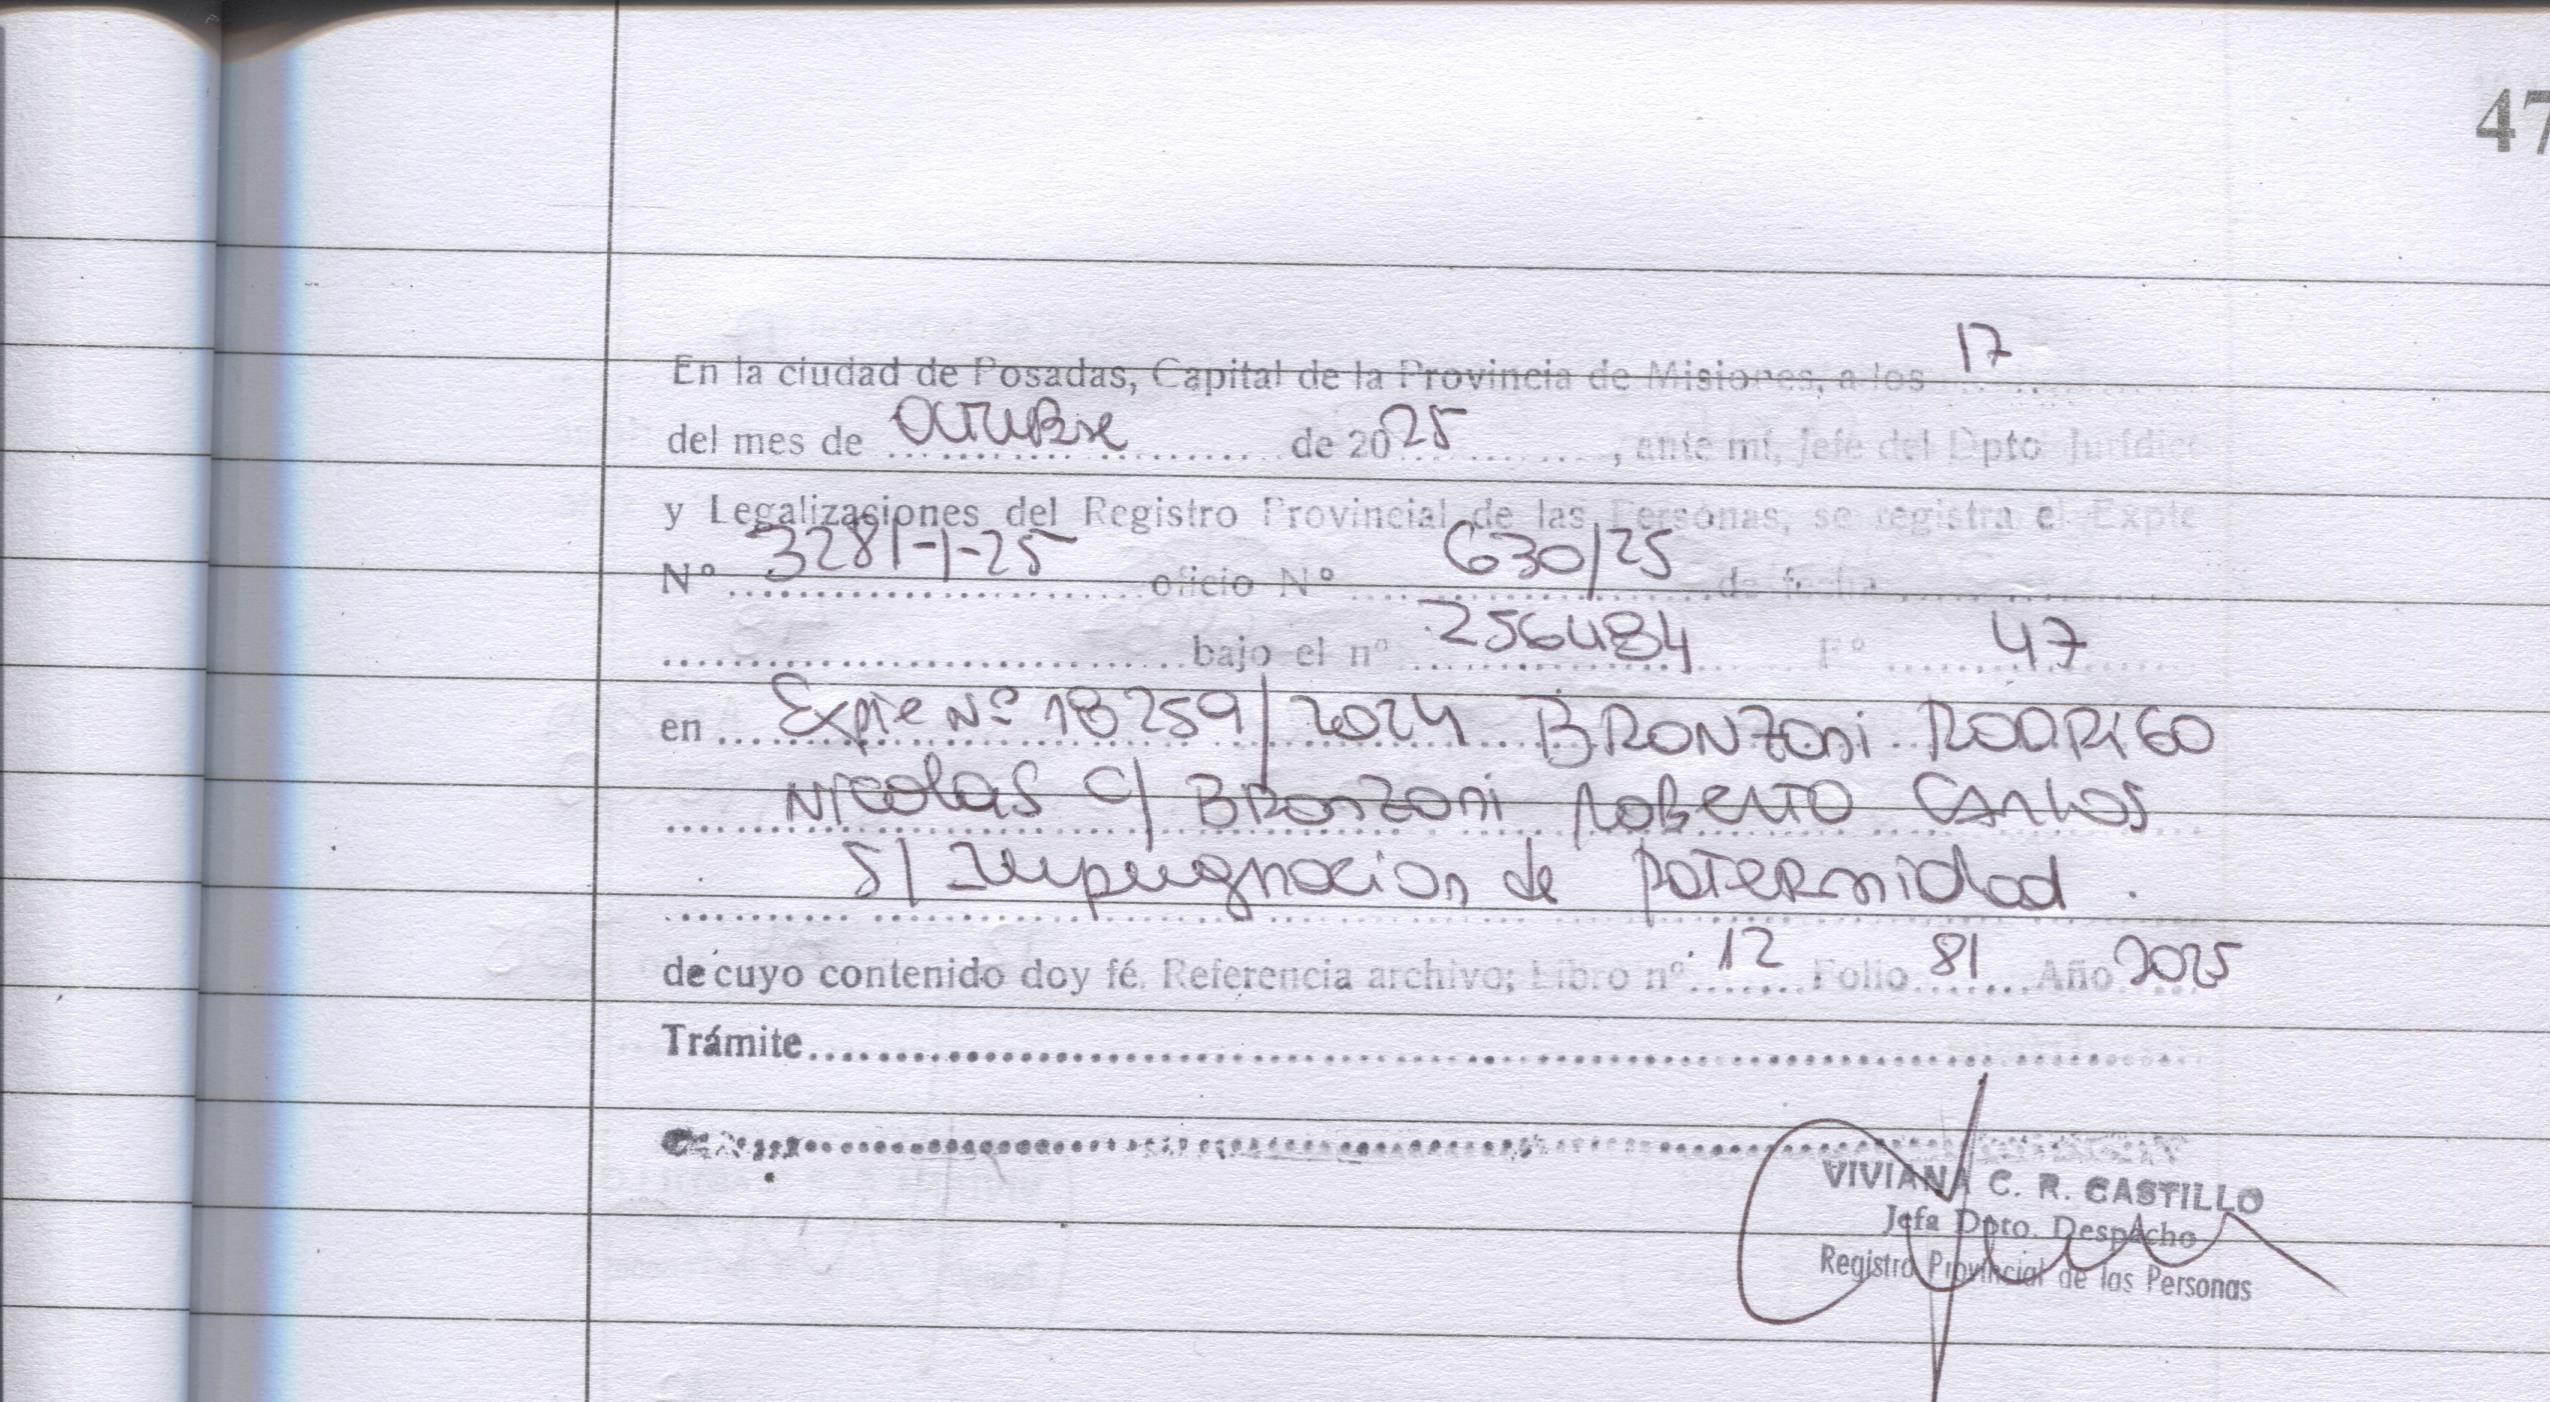 47
En la ciudad de Posadas, Capital de la Provincia de Misiones, a los 17
del mes de octubre de 2025, ante mí, Jefe del Dpto Jurídico
y Legalizaciones del Registro Provincial de las Personas, se registra el Expte
Nº 3281-1-25 oficio Nº 630/25 de fecha
bajo el nº 256484 Fº 47
en Expte Nº 18259/2024 BRONZONI RODRIGO
NICOLAS C/ BRONZONI ROBERTO CARLOS
S/ Impugnacion de paternidad.
de cuyo contenido doy fé. Referencia archivo; Libro nº 12 Folio 81 Año 2025
Trámite
VIVIANA C. R. CASTILLO
Jefa Dpto. Despacho
Registro Provincial de las Personas